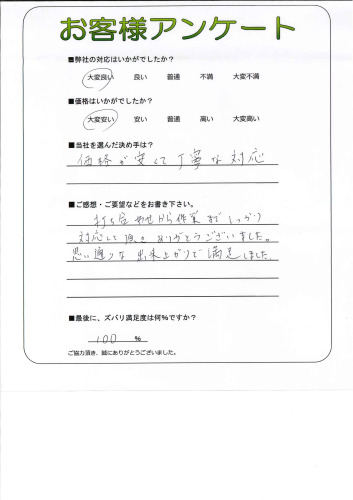 お客様アンケート
■弊社の対応はいかがでしたか？
大変良い 良い 普通 不満 大変不満
■価格はいかがでしたか？
大変安い 安い 普通 高い 大変高い
■当社を選んだ決め手は？
価格が安くて丁寧な対応
■ご感想・ご要望などをお書き下さい。
打ち合わせから作業までしっかり
対応して頂きありがとうございました。
思い通りな出来上がりで満足しました。
■最後に、ズバリ満足度は何％ですか？
100 %
ご協力頂き、誠にありがとうございました。